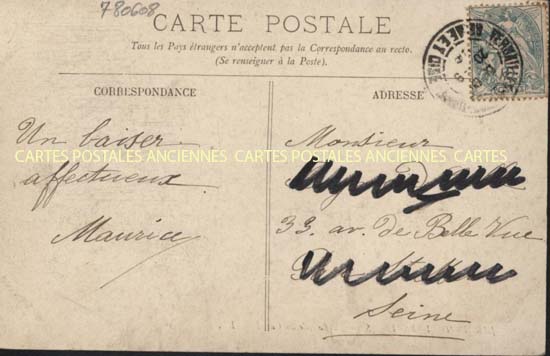 780608
CARTE POSTALE
Tous les Pays étrangers n'acceptent pas la Correspondance au recto.
(Se renseigner à la Poste).
CORRESPONDANCE
ADRESSE
Un baiser
affectueux
Maurice
Monsieur
33. av. de Belle Vue
Seine
CARTES POSTALES ANCIENNES CARTES POSTALES ANCIENNES CARTES